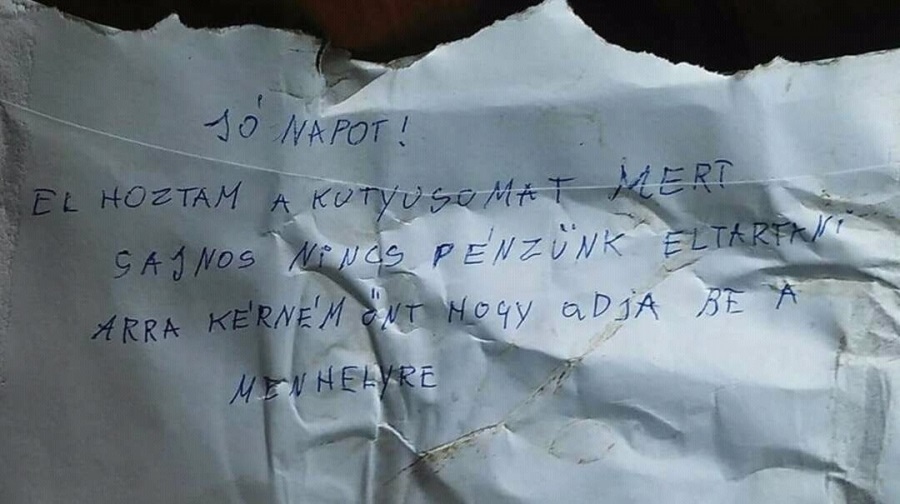 JÓ NAPOT!
EL HOZTAM A KUTYUSOMAT MERT
SAJNOS NINCS PÉNZÜNK ELTARTANI
ARRA KÉRNÉM ÖNT HOGY ADJA BE A
MENHELYRE